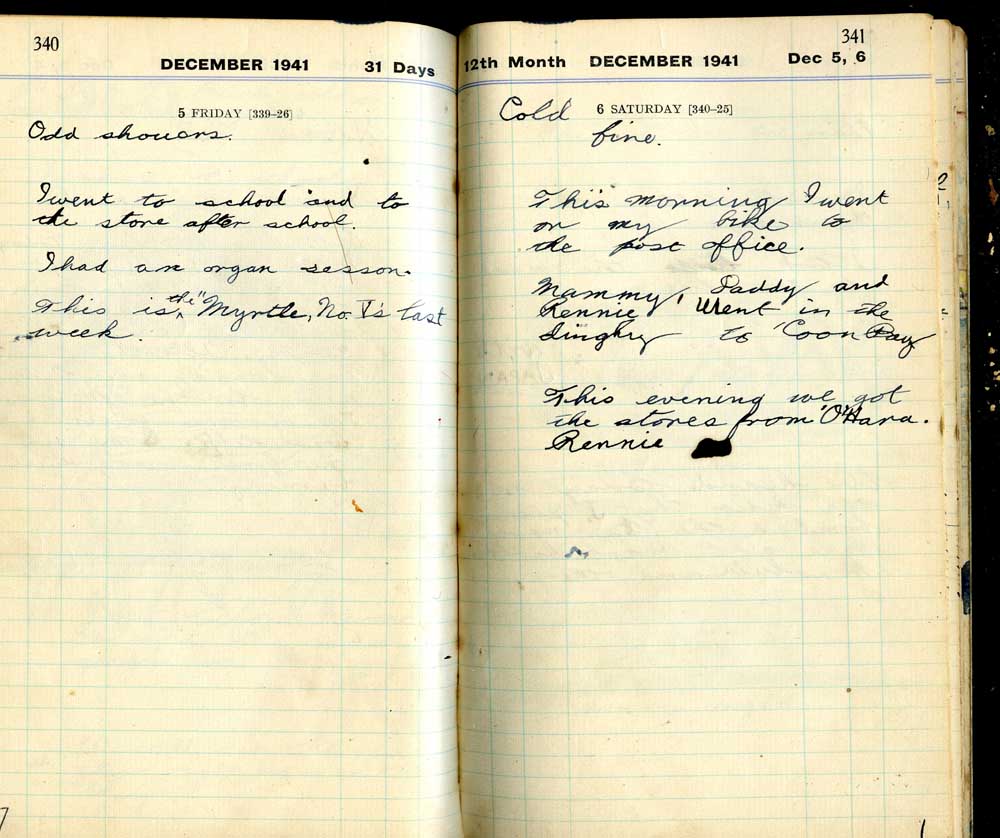 340
DECEMBER 1941 31 Days
5 FRIDAY [339–26]
Odd showers.
I went to school and to
the store after school.
I had an organ sesson.
This is, the "Myrtle, No. V's last
week.
341
12th Month DECEMBER 1941 Dec 5, 6
Cold 6 SATURDAY [340–25]
fine.
This morning I went
on my bike to
the post office.
Mammy, Daddy and
Rennie went in the
dinghy to 'Coon Bay
This evening we got
the stores from 'O'Hara.
Rennie